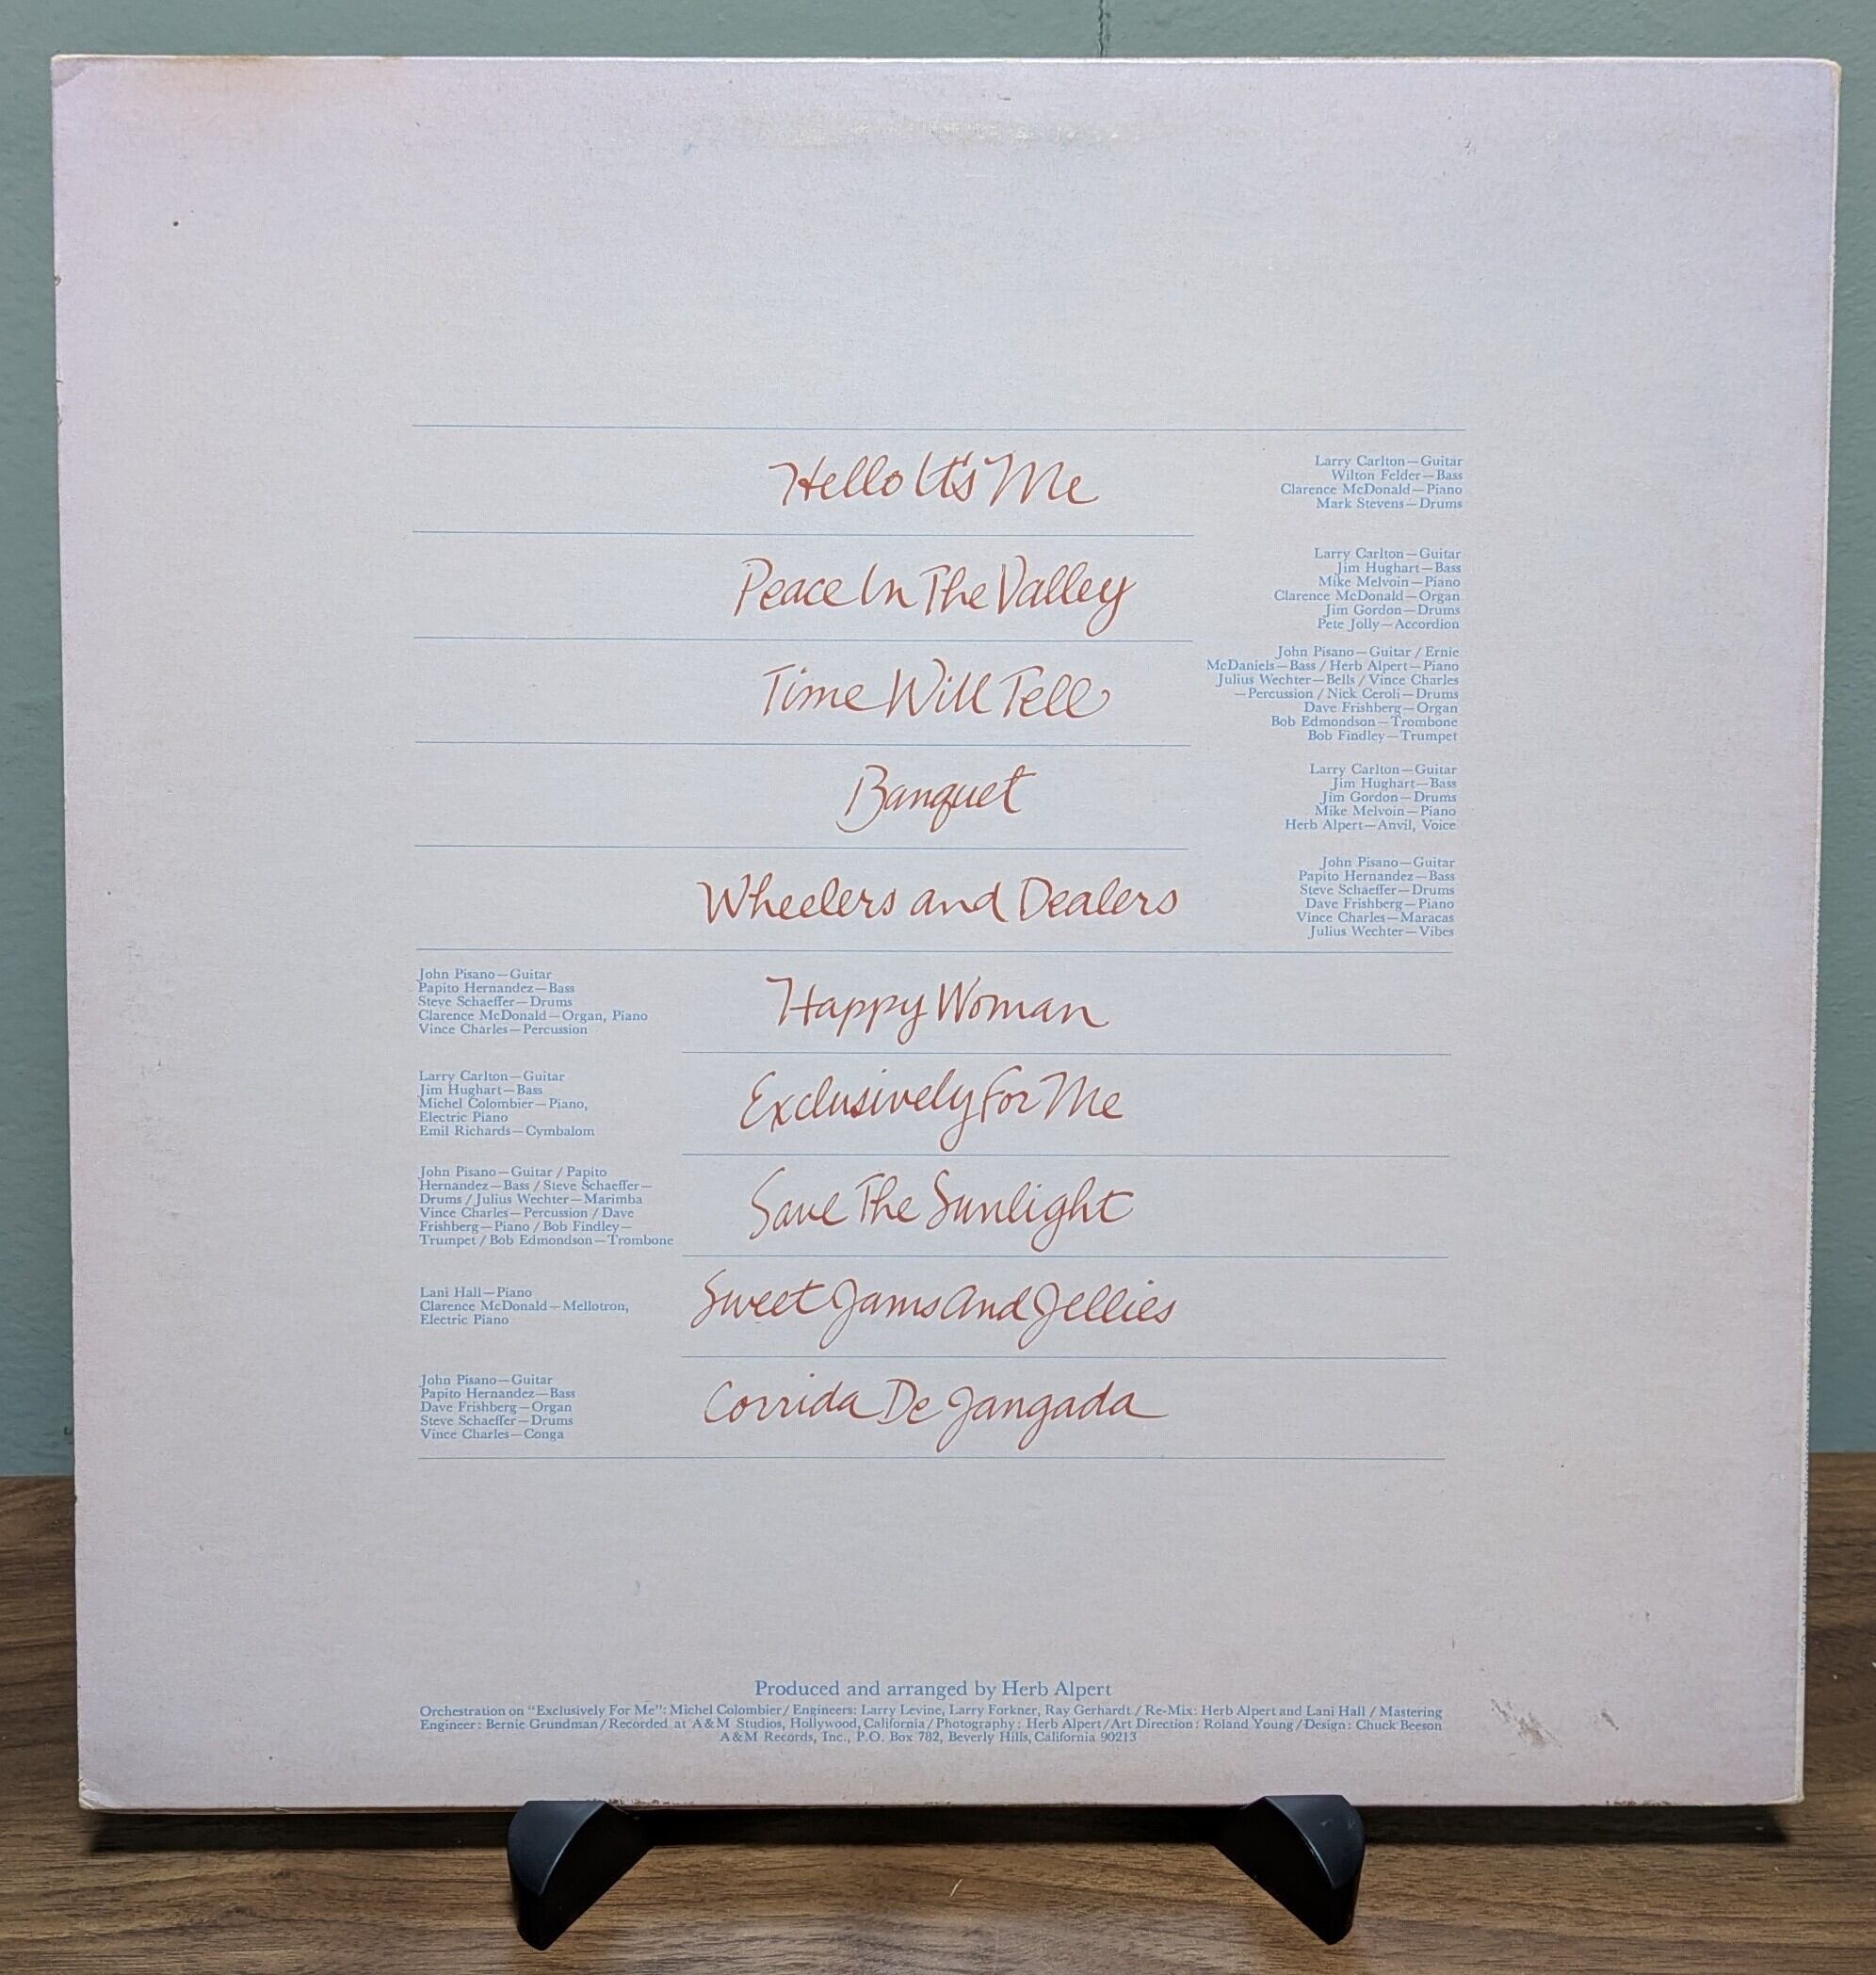 Hello It's Me
Larry Carlton—Guitar
Wilton Felder—Bass
Clarence McDonald—Piano
Mark Stevens—Drums
Peace In The Valley
Larry Carlton—Guitar
Jim Hughart—Bass
Mike Melvoin—Piano
Clarence McDonald—Organ
Jim Gordon—Drums
Pete Jolly—Accordion
Time Will Tell
John Pisano—Guitar / Ernie
McDaniels—Bass / Herb Alpert—Piano
Julius Wechter—Bells / Vince Charles
—Percussion / Nick Ceroli—Drums
Dave Frishberg—Organ
Bob Edmondson—Trombone
Bob Findley—Trumpet
Banquet
Larry Carlton—Guitar
Jim Hughart—Bass
Jim Gordon—Drums
Mike Melvoin—Piano
Herb Alpert—Anvil, Voice
Wheelers and Dealers
John Pisano—Guitar
Papito Hernandez—Bass
Steve Schaeffer—Drums
Dave Frishberg—Piano
Vince Charles—Maracas
Julius Wechter—Vibes
John Pisano—Guitar
Papito Hernandez—Bass
Steve Schaeffer—Drums
Clarence McDonald—Organ, Piano
Vince Charles—Percussion
Happy Woman
Larry Carlton—Guitar
Jim Hughart—Bass
Michel Colombier—Piano,
Electric Piano
Emil Richards—Cymbalom
Exclusively For Me
John Pisano—Guitar / Papito
Hernandez—Bass / Steve Schaeffer—
Drums / Julius Wechter—Marimba
Vince Charles—Percussion / Dave
Frishberg—Piano / Bob Findley—
Trumpet / Bob Edmondson—Trombone
Save The Sunlight
Lani Hall—Piano
Clarence McDonald—Mellotron,
Electric Piano
Sweet Jams And Jellies
John Pisano—Guitar
Papito Hernandez—Bass
Dave Frishberg—Organ
Steve Schaeffer—Drums
Vince Charles—Conga
Corrida De Jangada
Produced and arranged by Herb Alpert
Orchestration on "Exclusively For Me": Michel Colombier / Engineers: Larry Levine, Larry Forkner, Ray Gerhardt / Re-Mix: Herb Alpert and Lani Hall / Mastering
Engineer: Bernie Grundman / Recorded at A&M Studios, Hollywood, California / Photography: Herb Alpert / Art Direction: Roland Young / Design: Chuck Beeson
A&M Records, Inc., P.O. Box 782, Beverly Hills, California 90213